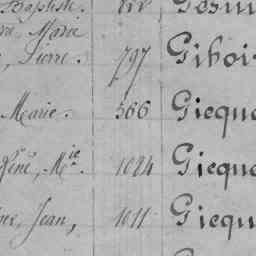 Baptiste.
Marie
Pierre. 797 Giboi
Marie. 566 Gicque
René, Mie. 1024 Gicque
Jean, 1011 Gicqu